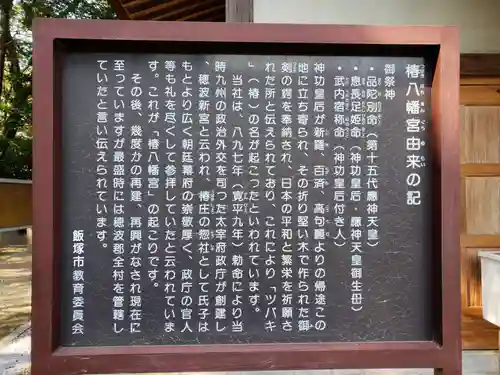 椿八幡宮由来の記
御祭神
・品陀別命（第十五代應神天皇）
・息長足姫命（神功皇后・應神天皇御生母）
・武内宿祢命（神功皇后付き人）
神功皇后が新羅、百済、高句麗よりの帰途この
地に立ち寄られ、その折り堅い木で作られた御
剣の鍔を奉納され、日本の平和と繁栄を祈願さ
れた所と伝えられており、これにより「ツバキ
」（椿）の名が起こったといわれています。
当社は、八九七年（寛平九年）勅命により当
時九州の政治外交を司った太宰府政庁が創建し
、穂波新宮と云われ、椿庄の惣社として氏子は
もとより広く朝廷幕府の崇敬厚く、政庁の官人
等も礼を尽くして参拝していたと云われていま
す。これが「椿八幡宮」の起こりです。
その後、幾度かの再建、再興がなされ現在に
至っていますが最盛時には穂波郡全村を管轄し
ていたと言い伝えられています。
飯塚市教育委員会